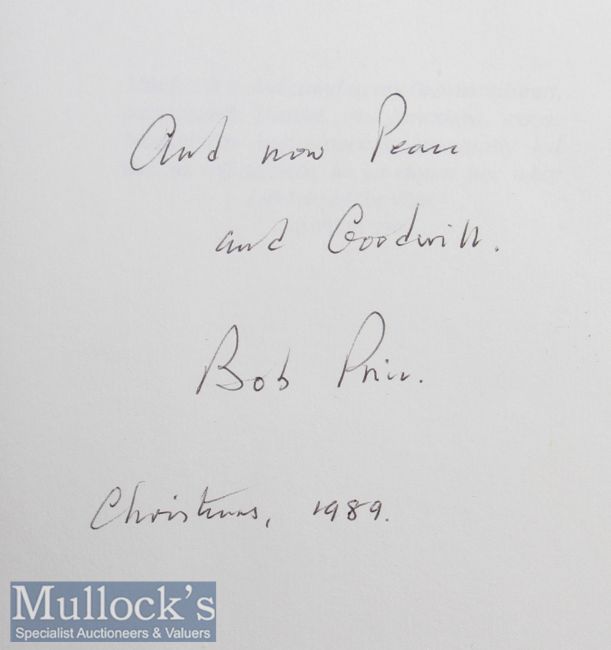 And now Peace
and Goodwill.
Bob Price.
Christmas, 1989.
Mullock's
Specialist Auctioneers & Valuers